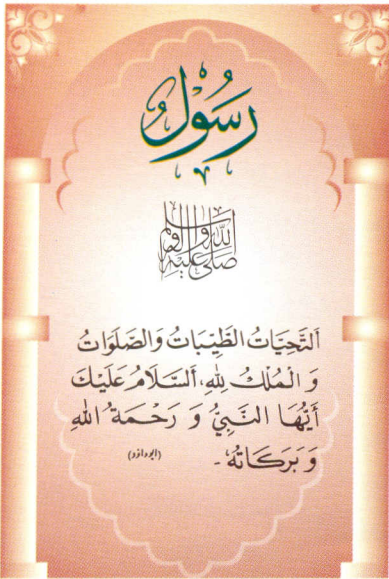 رَسُوْلُ
صَلَّى اللّٰهُ عَلَيْهِ وَاٰلِهٖ وَسَلَّمَ
اَلتَّحِيَّاتُ الطَّيِّبَاتُ وَالصَّلَوَاتُ
وَ الْمُلْكُ لِلّٰهِ، اَلسَّلَامُ عَلَيْكَ
أَيُّهَا النَّبِيُّ وَ رَحْمَةُ اللّٰهِ
وَ بَرَكَاتُهٗ۔ (ابوداؤد)